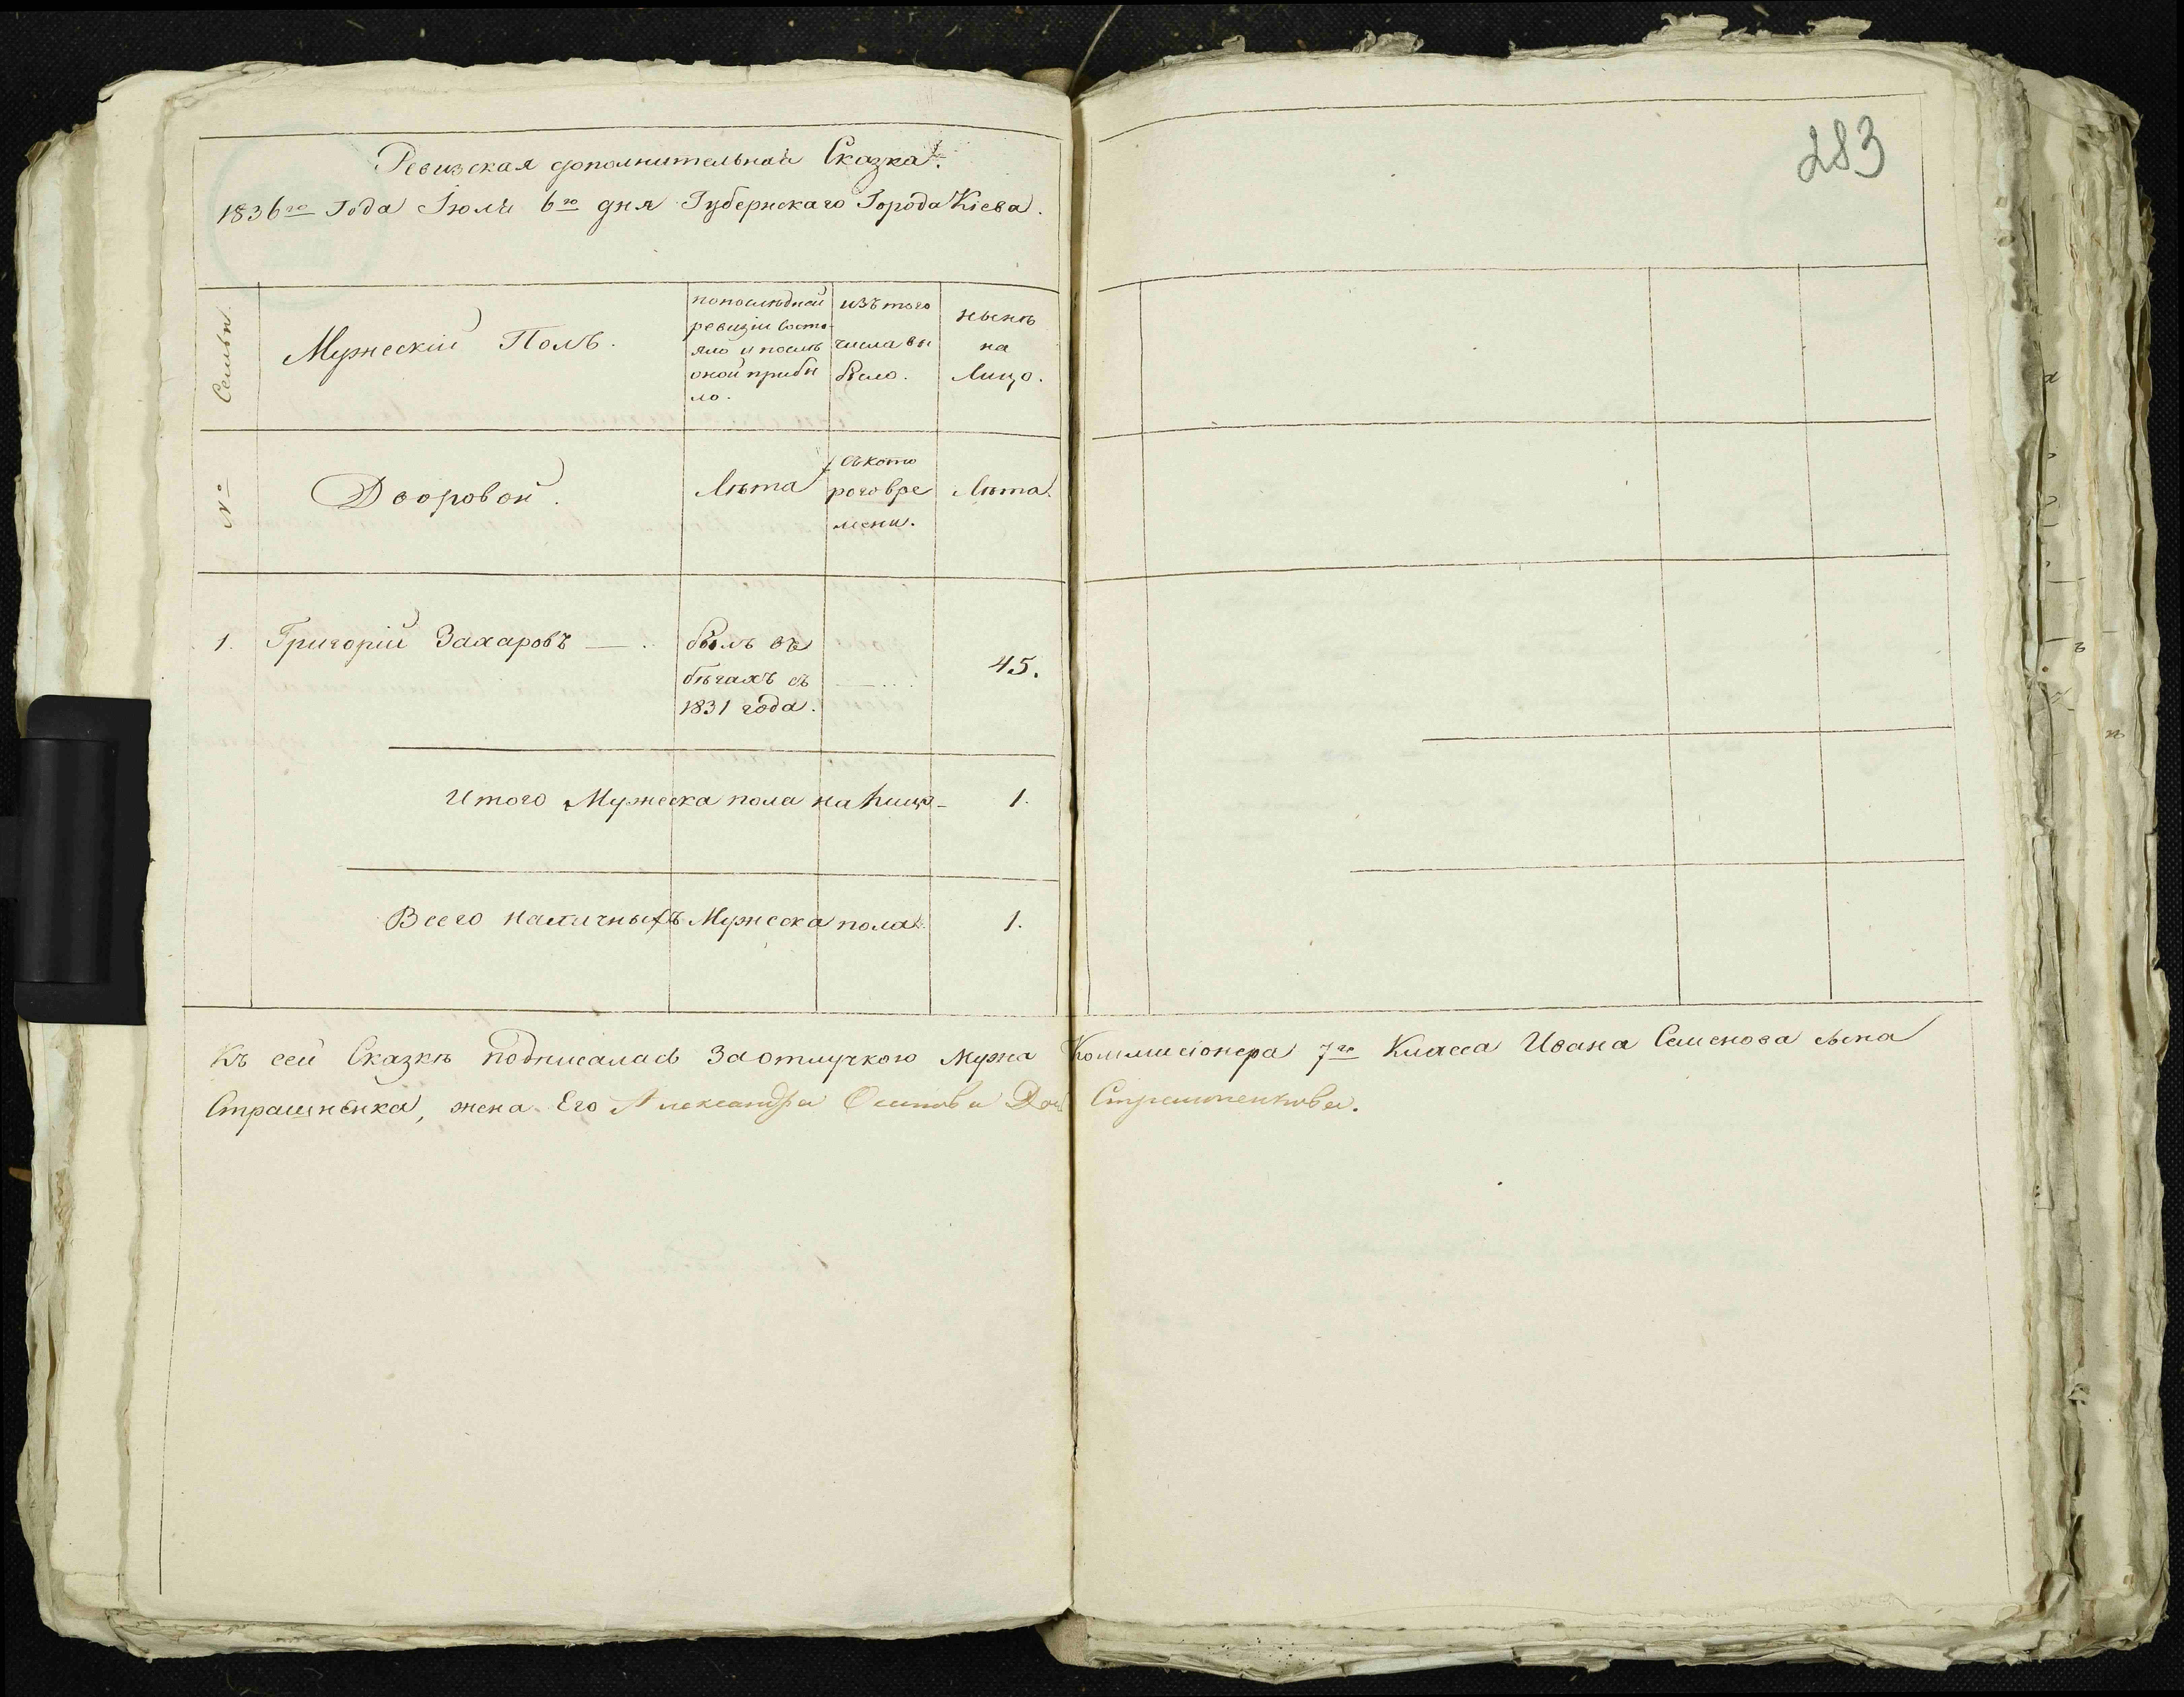 283
Ревизская дополнительная Сказка.
1836го Года Июля 6го дня Губернскаго Города Кіева.
Семьи.
Мужескій Полъ.
по последней
ревизіи состо-
яло и после
оной прибы
ло.
изъ того
числа вы
было.
ныне
на
Лицо.
№
Дворовой.
Лѣта
съ кото
раго вре
мени.
Лѣта.
1. Григорій Захаровъ — .
былъ въ
бѣгахъ съ
1831 года.
— ...
45.
Итого Мужеска пола на Лицо - 1.
Всего наличныхъ Мужеска пола 1.
Къ сей Сказкѣ подписалась За отлучкою мужа Коммисіонера 7го Класса Ивана Семенова сына
Страшненка, жена Его Александра Осипова Дочь Страшненкова.